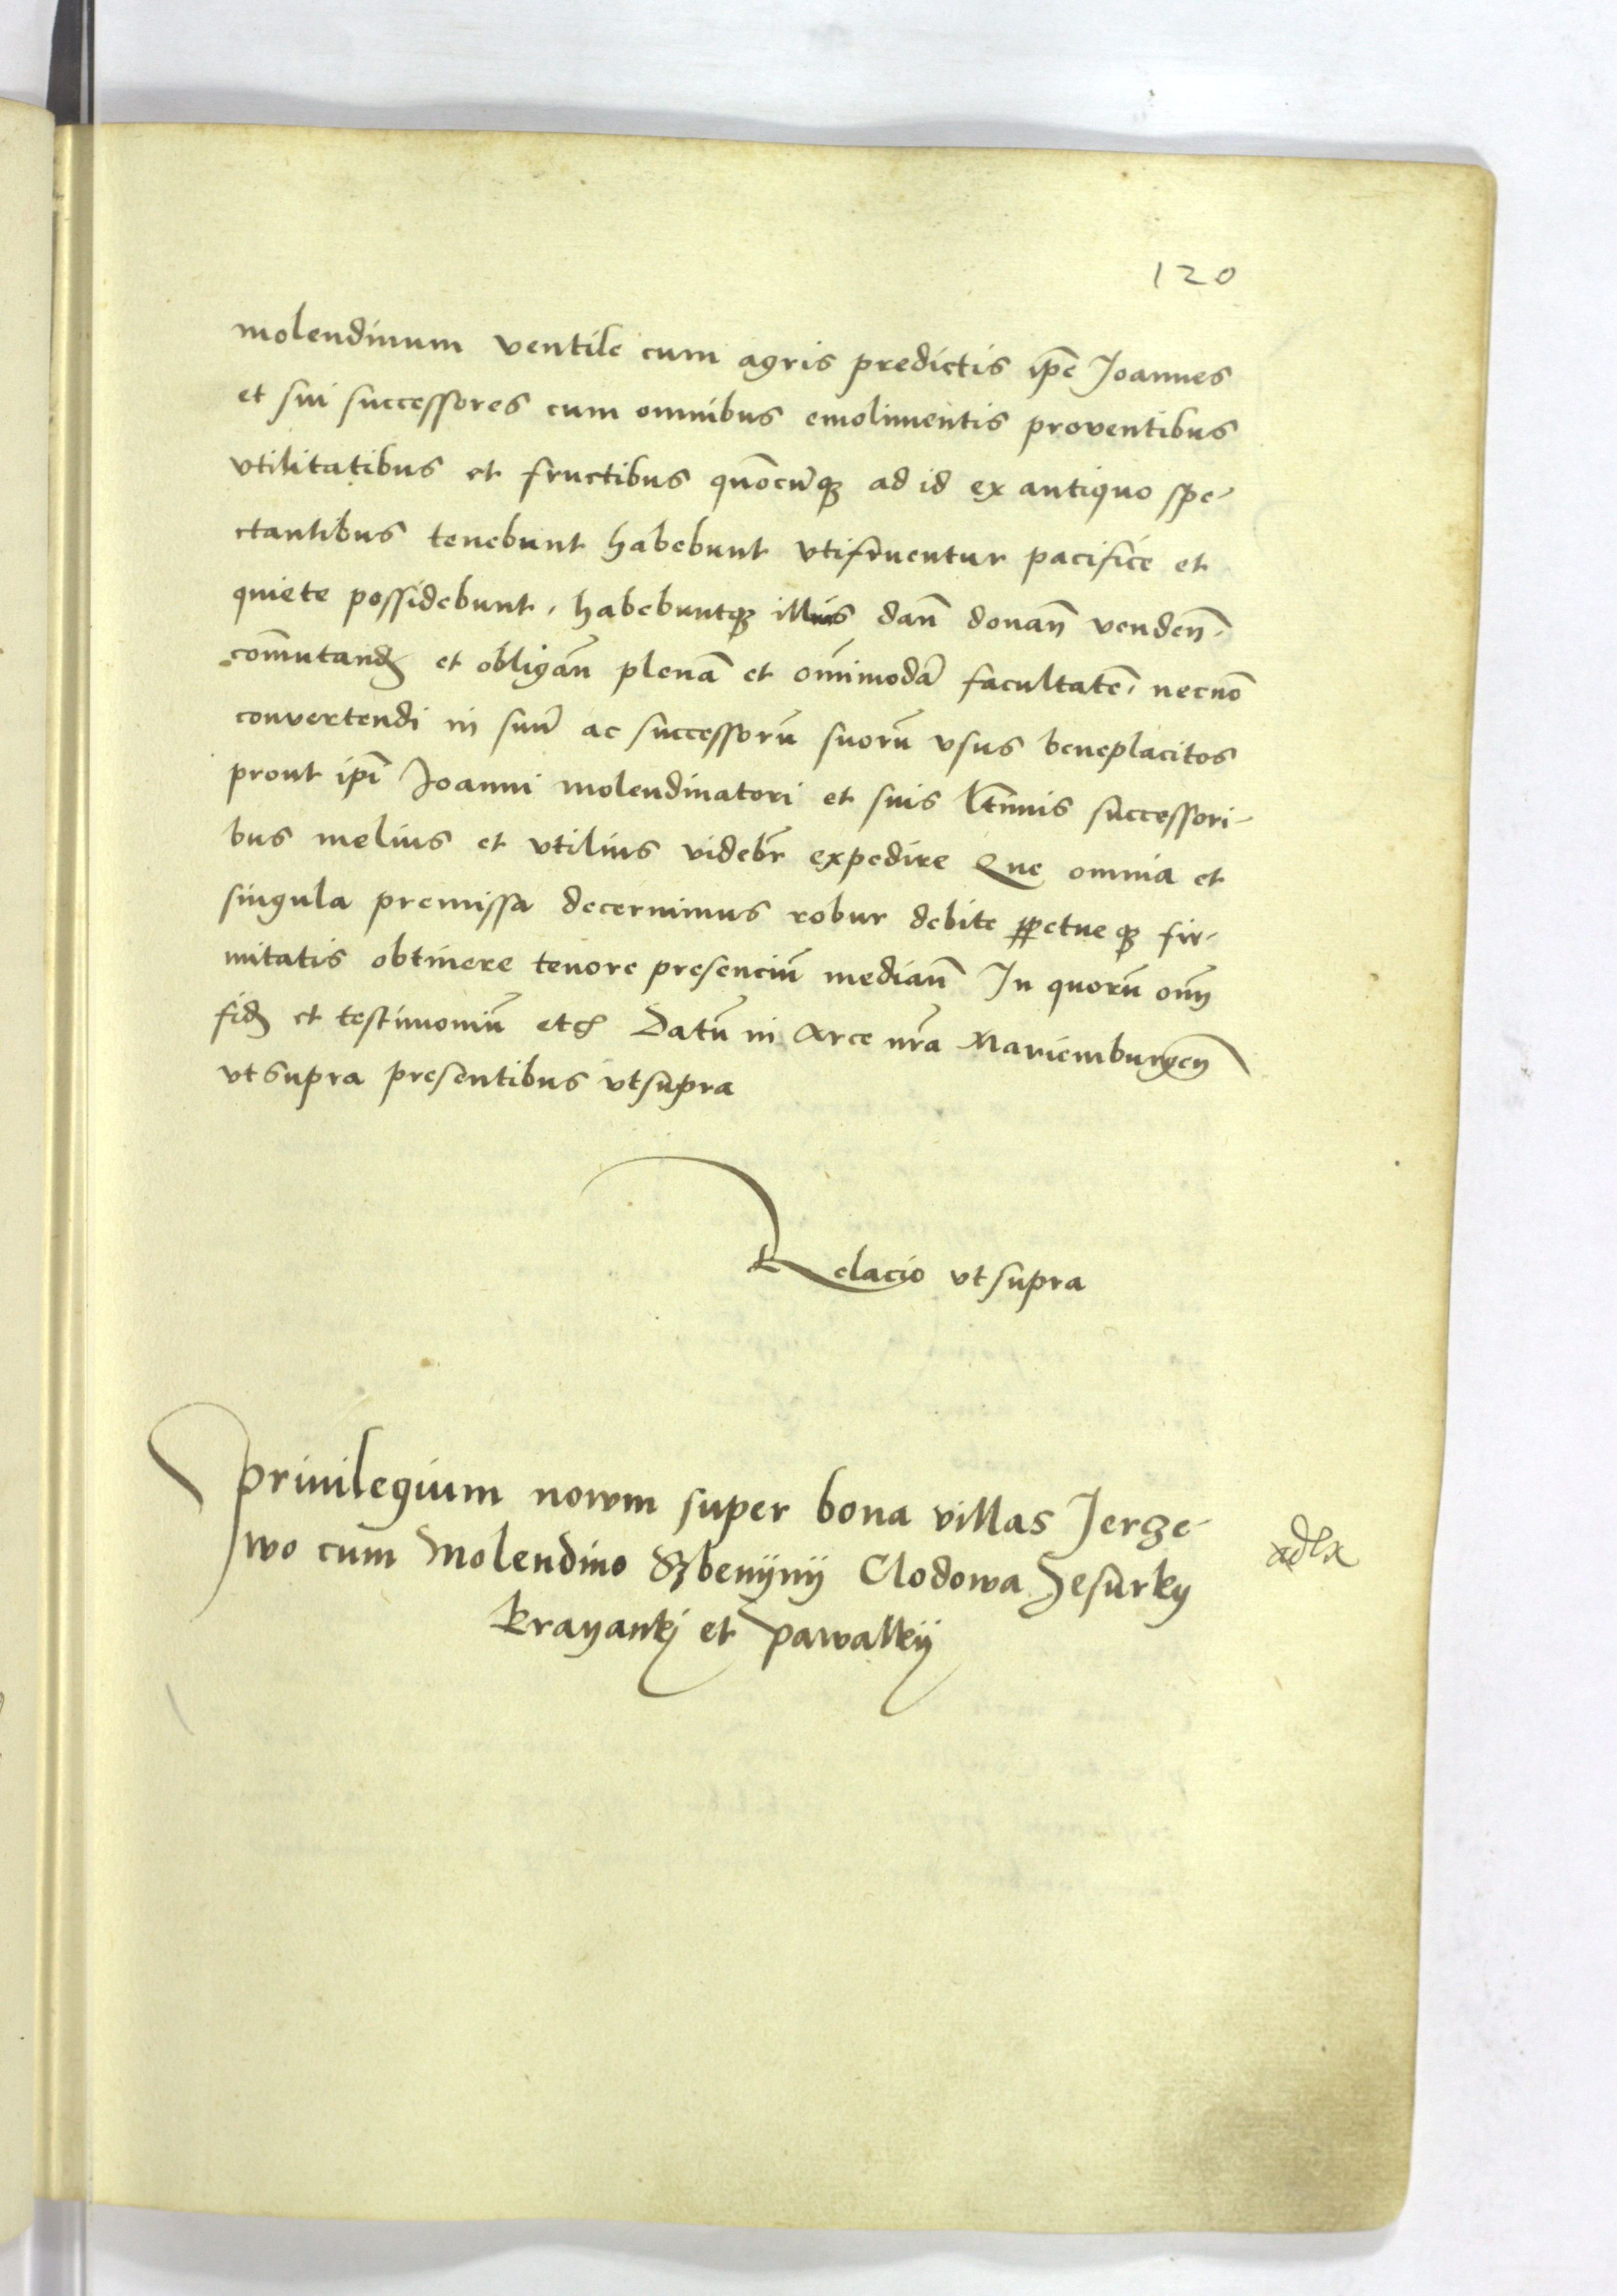 120
molendinum ventile cum agris predictis ip̄e Joannes
et sui successores cum omnibus emolimentis proventibus
vtilitatibus et fructibus quōcūqȝ ad id ex antiquo spe-
ctantibus tenebunt habebunt vtifruentur pacifice et
quiete possidebunt, habebuntqȝ illius dan̄ donan̄ venden̄.
com̄utanđ et obligan̄ plenā et om̄imodā facultatē, necnō
convertendi in suū ac successorū suorū vsus beneplacitos
prout ip̄i Joanni molendinatori et suis l̄timis successori-
bus melius et vtilius videbr̄ expedire Que omnia et
singula premissa decernimus robur debite ꝑpetueqȝ fir-
mitatis obtinere tenore presenciū median̄ In quorū om̄
fidē et testimoniū etc Datū in Arce nr̄a Mariemburgeñ
vt supra presentibus vt supra
Relacio vt supra
Privilegium nowm super bona villas Jerze-
wo cum Molendino Clodowa Jesurky
krayankj et Pawalkij